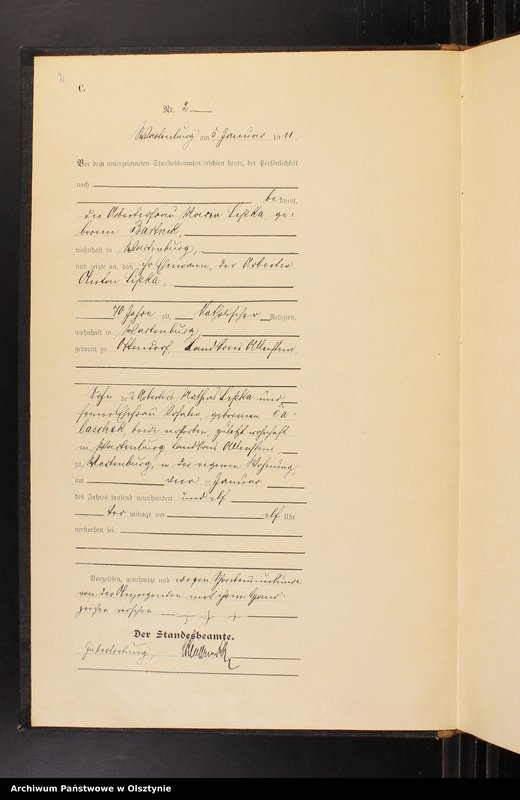 C.
Nr. 2
Wartenburg am 5 Januar 1911.
Vor dem unterzeichneten Standesbeamten erschien heute, der Persönlichkeit
nach
bekannt,
die Arbeiterfrau Maria Lipka, ge-
borene Bartnik,
wohnhaft in Wartenburg,
und zeigte an, daß ihr Ehemann, der Arbeiter
Anton Lipka,
70 Jahre alt, Katholischer Religion,
wohnhaft in Wartenburg,
geboren zu Ottendorf, Landkreis Allenstein,
Sohn des Arbeiters Mathias Lipka und
seiner Ehefrau Rosalie, geborenen
beide verstorben, zuletzt wohnhaft
in Wartenburg Landkreis Allenstein,
zu Wartenburg, in der eigenen Wohnung
am vier ten Januar
des Jahres tausend neunhundert und elf
Vor mittags um elf Uhr
verstorben sei.
Vorgelesen, genehmigt und wegen Schreibensunkunde
von der Anzeigenden mit ihrem Hand-
zeichen versehen. + + +
Der Standesbeamte.
In Vertretung,
Archiwum Państwowe w Olsztynie